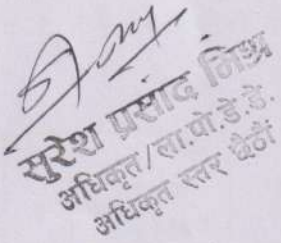 सुरेश प्रसाद मिश्र
अधिकृत/ला.पो.डे.डे.
अधिकृत स्तर छैठौं